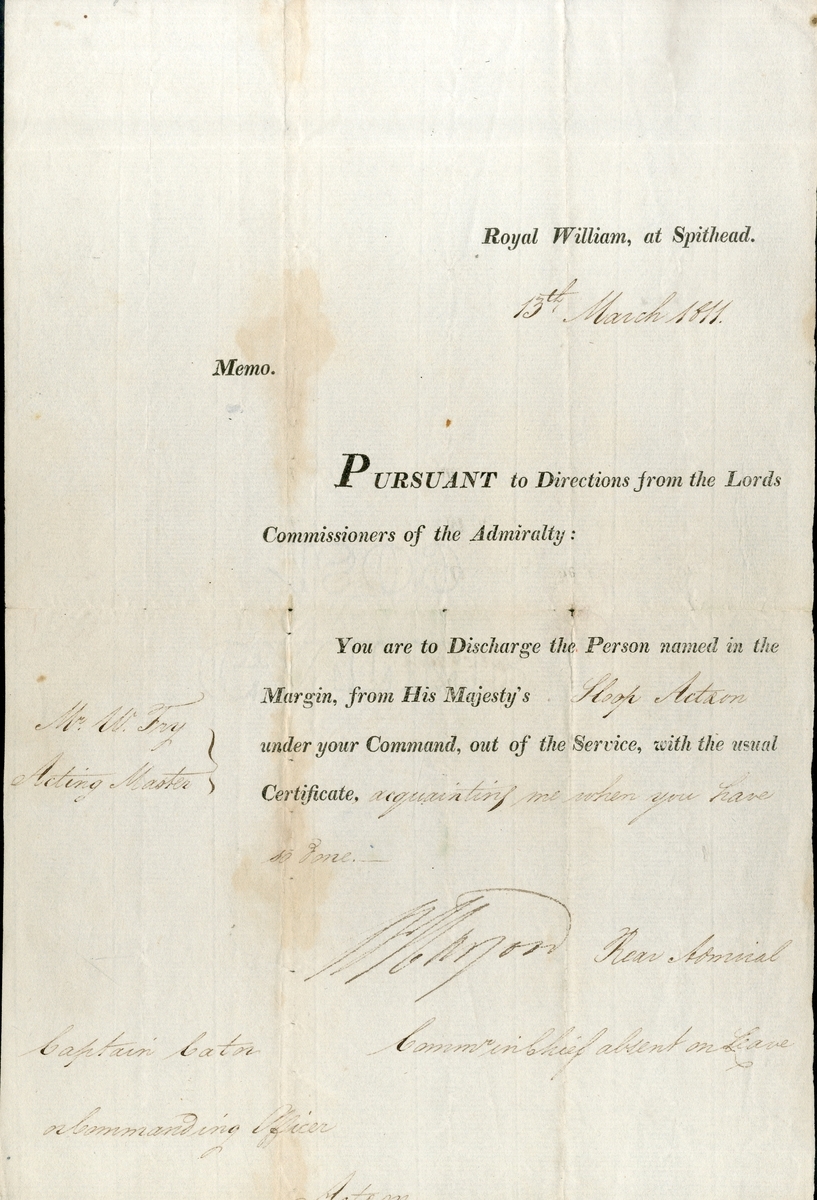 Royal William, at Spithead.
13th March 1811.
Memo.
PURSUANT to Directions from the Lords
Commissioners of the Admiralty:
You are to Discharge the Person named in the
Margin, from His Majesty's Sloop Actæon
Mr. W. Fry
under your Command, out of the Service, with the usual
Acting Master
Certificate, acquainting me when you have
so done.
Rear Admiral
Captain Cator
Commr in Chief absent on Leave
or Commanding Officer
Actæon